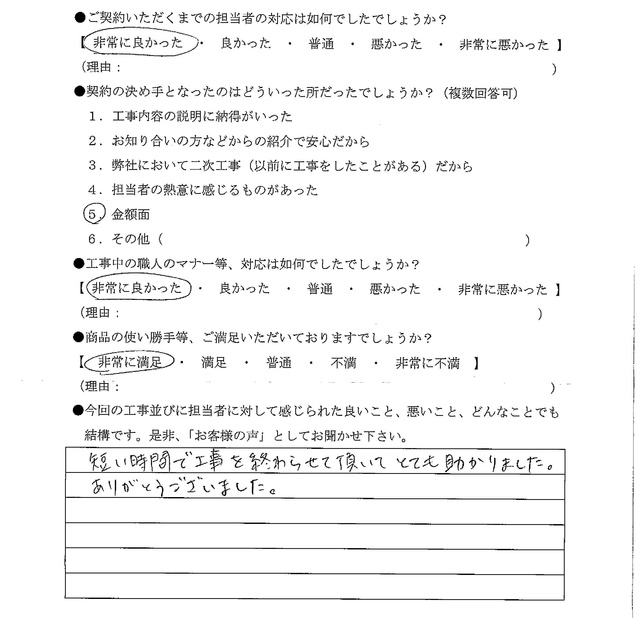 ●ご契約いただくまでの担当者の対応は如何でしたでしょうか？
【 非常に良かった ・ 良かった ・ 普通 ・ 悪かった ・ 非常に悪かった 】
（理由： ）
●契約の決め手となったのはどういった所だったでしょうか？（複数回答可）
１．工事内容の説明に納得がいった
２．お知り合いの方などからの紹介で安心だから
３．弊社において二次工事（以前に工事をしたことがある）だから
４．担当者の熱意に感じるものがあった
５．金額面
６．その他（ ）
●工事中の職人のマナー等、対応は如何でしたでしょうか？
【 非常に良かった ・ 良かった ・ 普通 ・ 悪かった ・ 非常に悪かった 】
（理由： ）
●商品の使い勝手等、ご満足いただいておりますでしょうか？
【 非常に満足 ・ 満足 ・ 普通 ・ 不満 ・ 非常に不満 】
（理由： ）
●今回の工事並びに担当者に対して感じられた良いこと、悪いこと、どんなことでも
結構です。是非、「お客様の声」としてお聞かせ下さい。
短い時間で工事を終わらせて頂いてとても助かりました。
ありがとうございました。